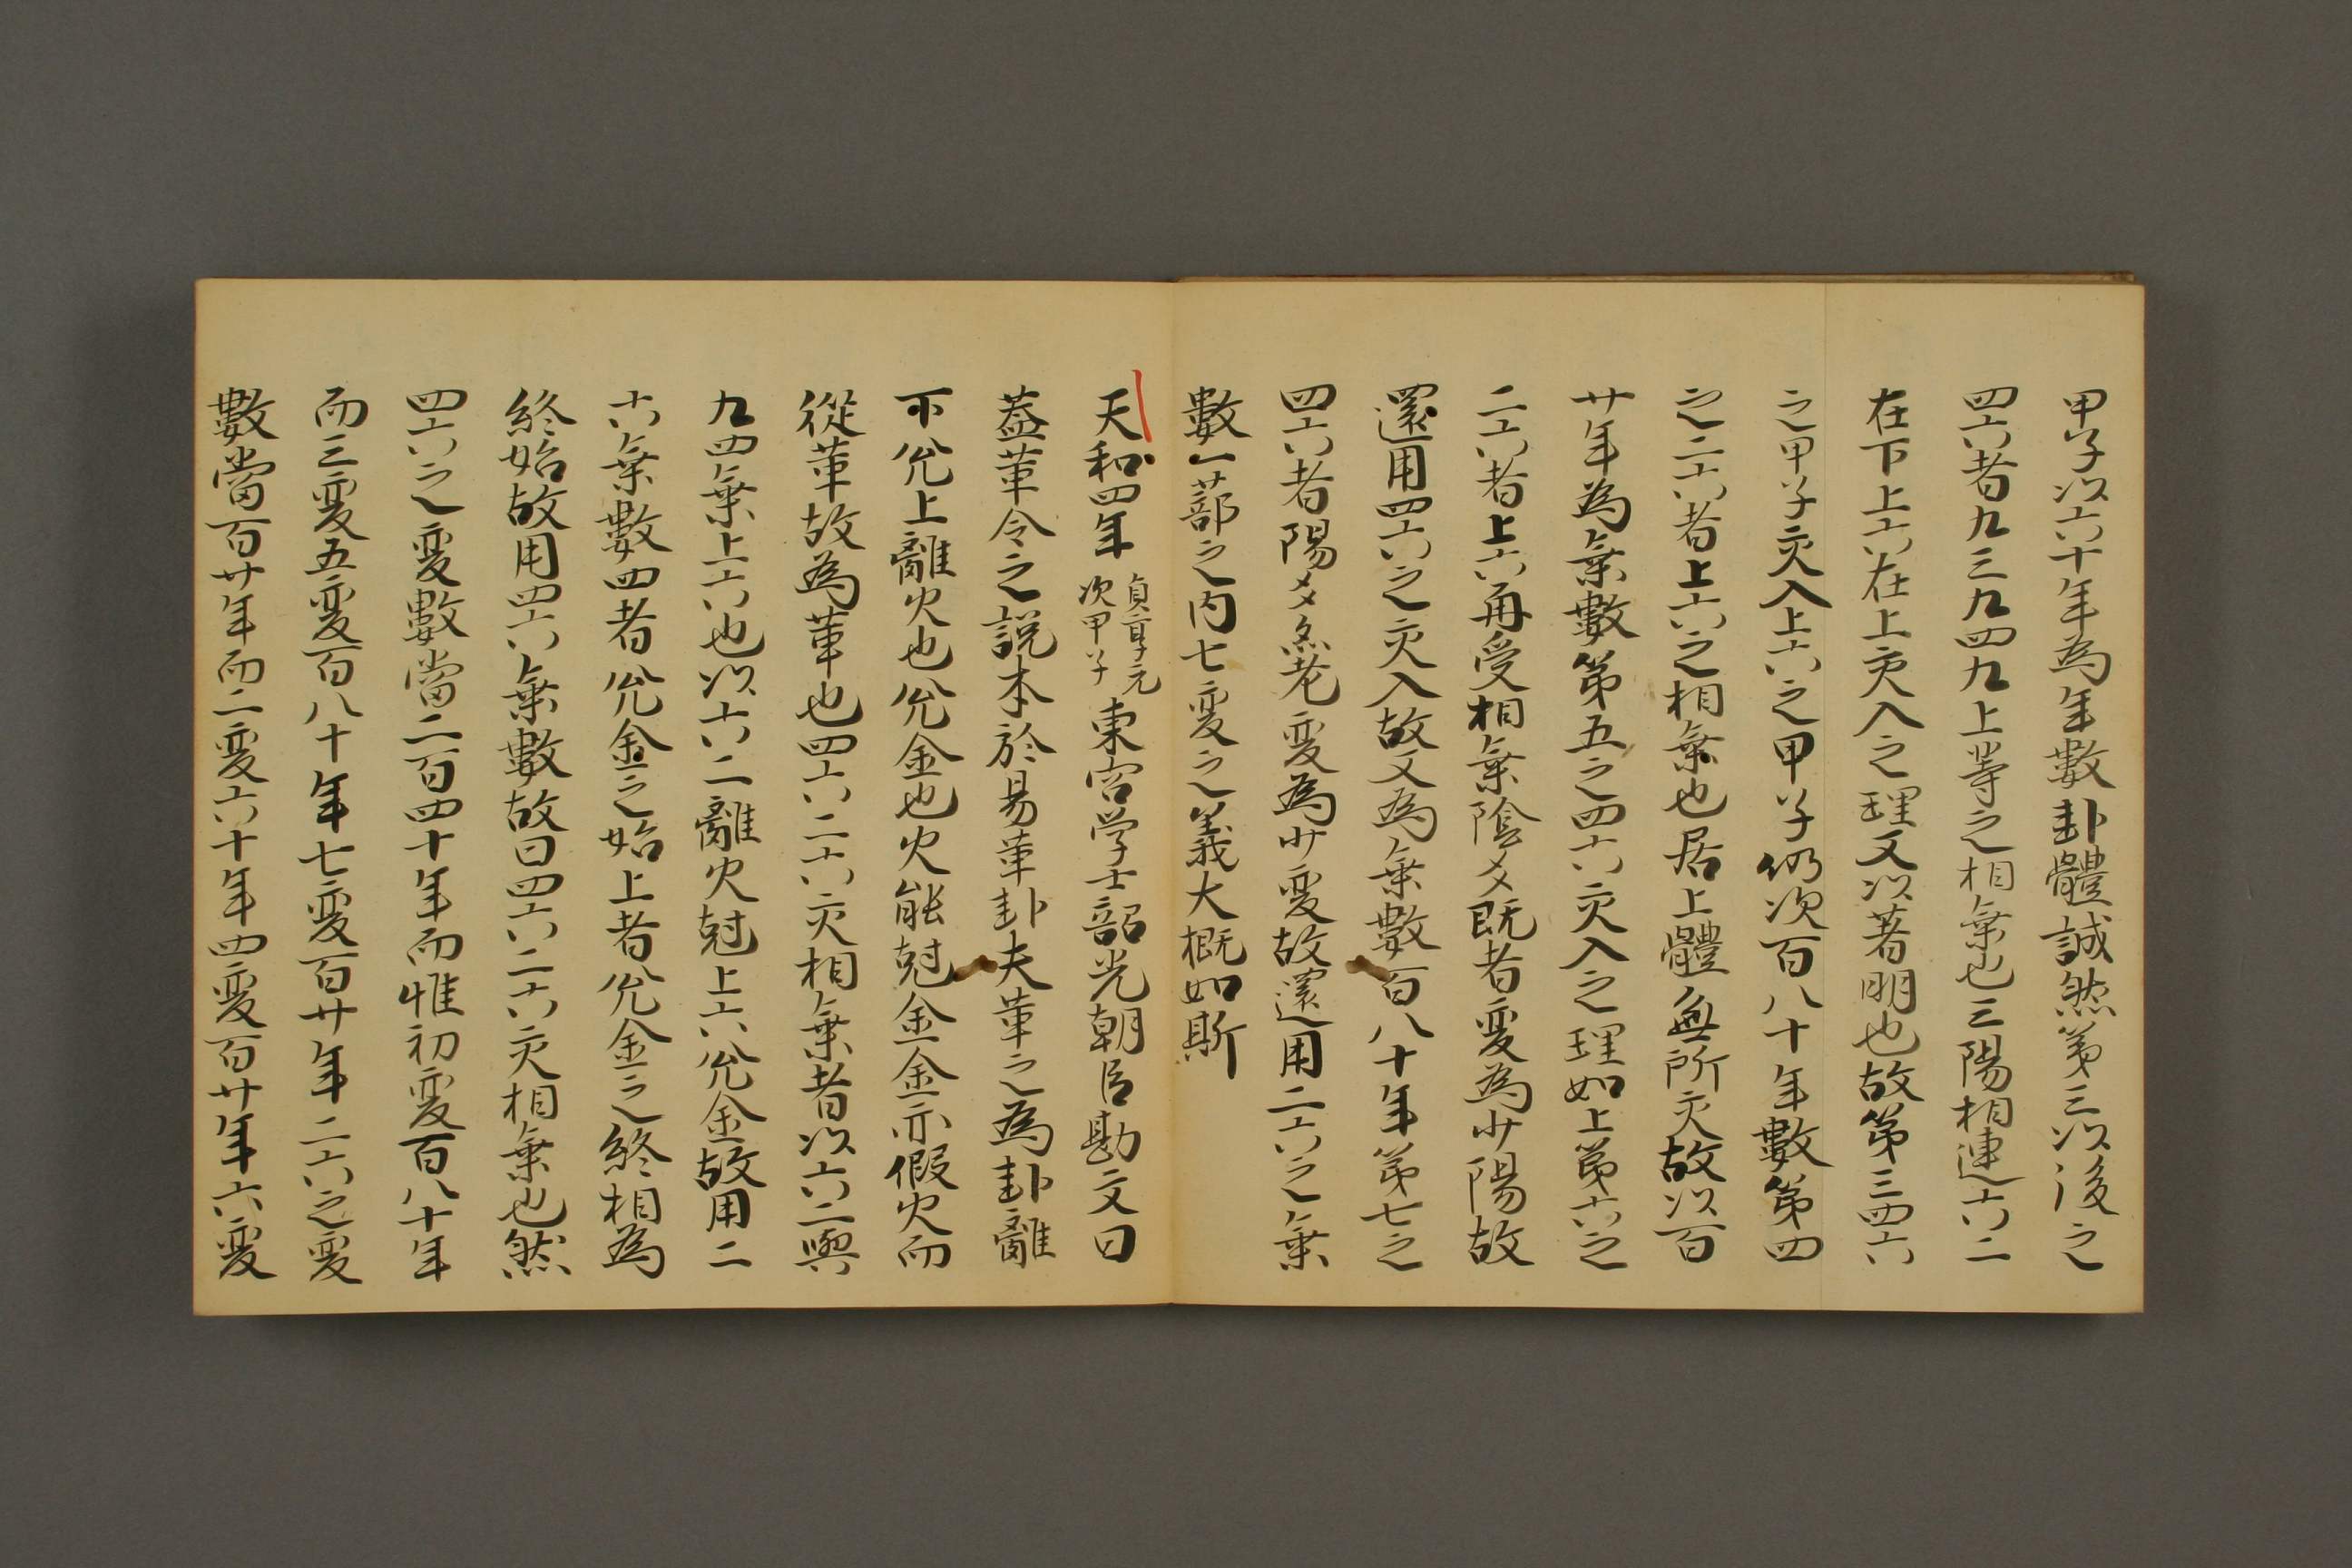 甲子以六十年為年數卦體誠然第三以後之
四六者九三九四九上等之相乗也三陽相連六二
在下上六在上交入之理又以著明也故第三四六
之甲子交入上六之甲子仍次百八十年數第四
之二六者上六之相乗也居上體無所交故以百
廿年為乗數第五之四六交入之理如上第六之
二六者上六再受相乗陰爻既者変為少陽故
還用四六之交入故又為乗數百八十年第七之
四六者陽爻々老変為少変故還用二六之乗
數一蔀之内七変之義大概如斯
天和四年 貞享元次甲子 東宮学士韶光朝臣勘文曰
蓋革令之説本於易革卦夫革之為卦離
下兊上離火也兊金也火能尅金金亦假火而
從革故為革也四六二六交相乗者以六二與
九四乗上六也以六二離火尅上六兊金故用二
六乗數四者兊金之始上者兊金之終相為
終始故用四六乗數故曰四六二六交相乗也然
四六之変數當二百四十年而惟初変百八十年
而三変五変百八十年七変百廿年二六之変
數當百廿年而二変六十年四変百廿年六変